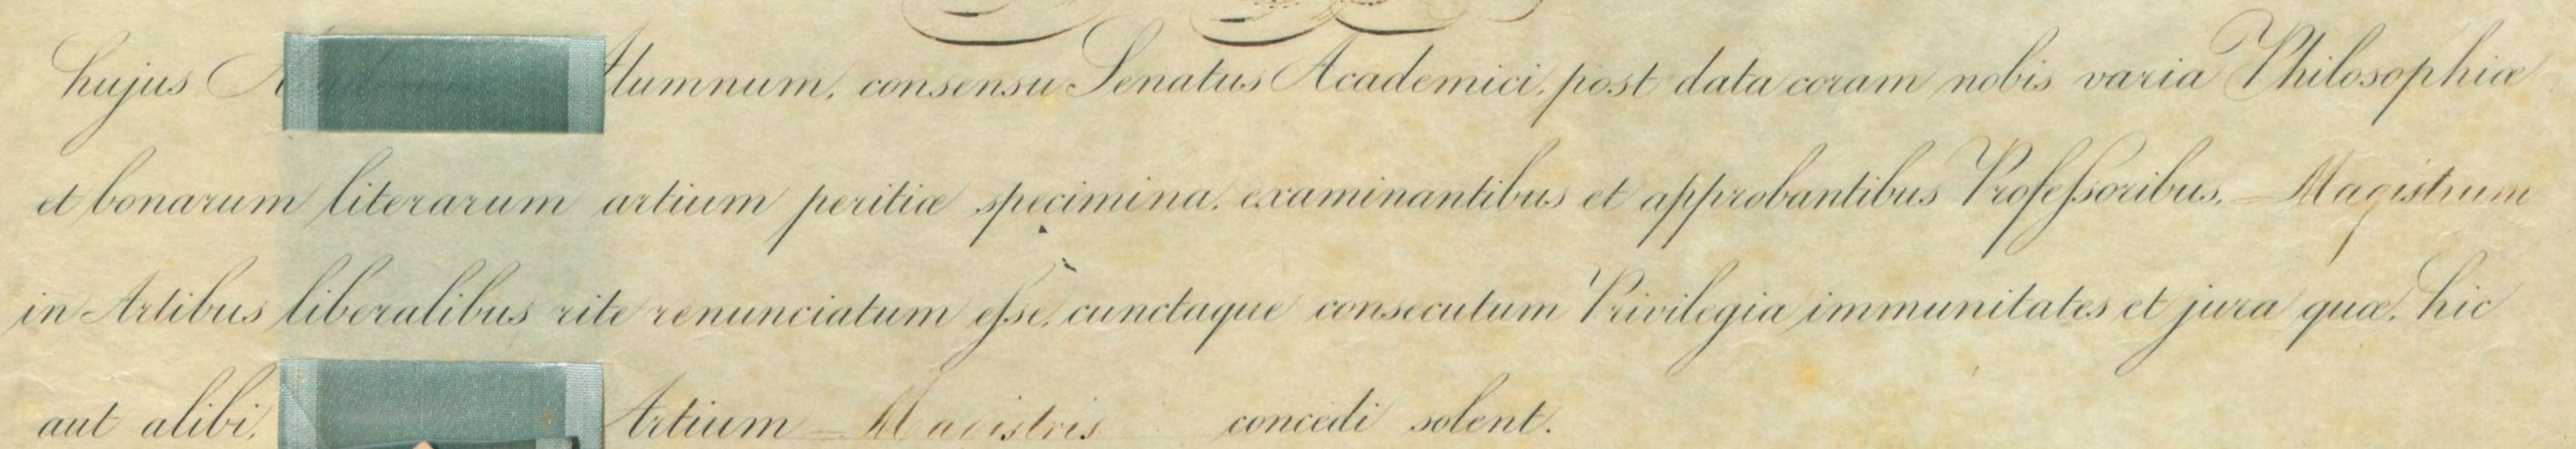 hujus Alumnum, consensu Senatus Academici, post data coram nobis varia Philosophiæ
et bonarum literarum artium peritiæ specimina, examinantibus et approbantibus Professoribus, Magistrum
in Artibus liberalibus rite renunciatum esse, cunctaque consecutum Privilegia immunitates et jura quæ, hic
aut alibi, Artium Magistris concedi solent.